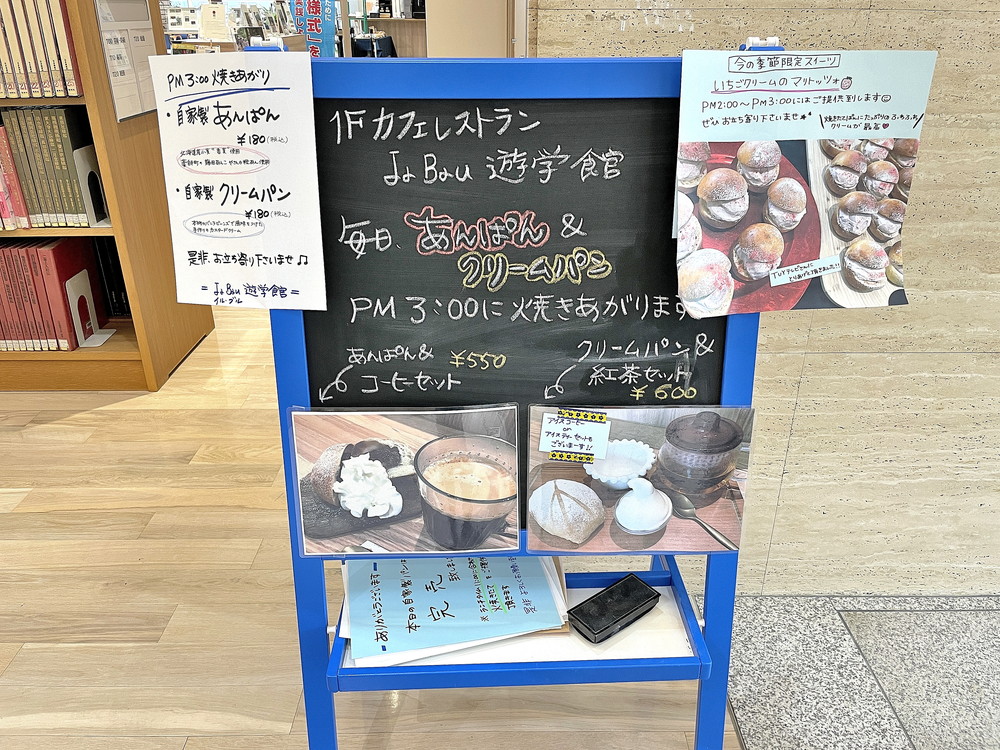 PM 3:00 焼きあがり
・自家製 あんぱん
¥180(税込)
・自家製 クリームパン
¥180(税込)
是非、お立ち寄り下さいませ♫
= Ja Bau 遊学館 =
1F カフェレストラン
Ja Bau 遊学館
毎日、あんぱん &
クリームパン
PM 3:00に 焼きあがります
あんぱん&
コーヒーセット
¥550
クリームパン &
紅茶セット
¥600
今の季節限定スイーツ
いちごクリームのマリトッツォ
PM2:00〜PM3:00にはご提供到します
ぜひお立ち寄り下さいませ
クリームが最高♥
TUYテレビさんに
とりあげて頂きました!!
アイスコーヒー
or
アイスティーセットも
ございまーす!!
ありがとうございます
本日の自家製パンは
完売
致しまし